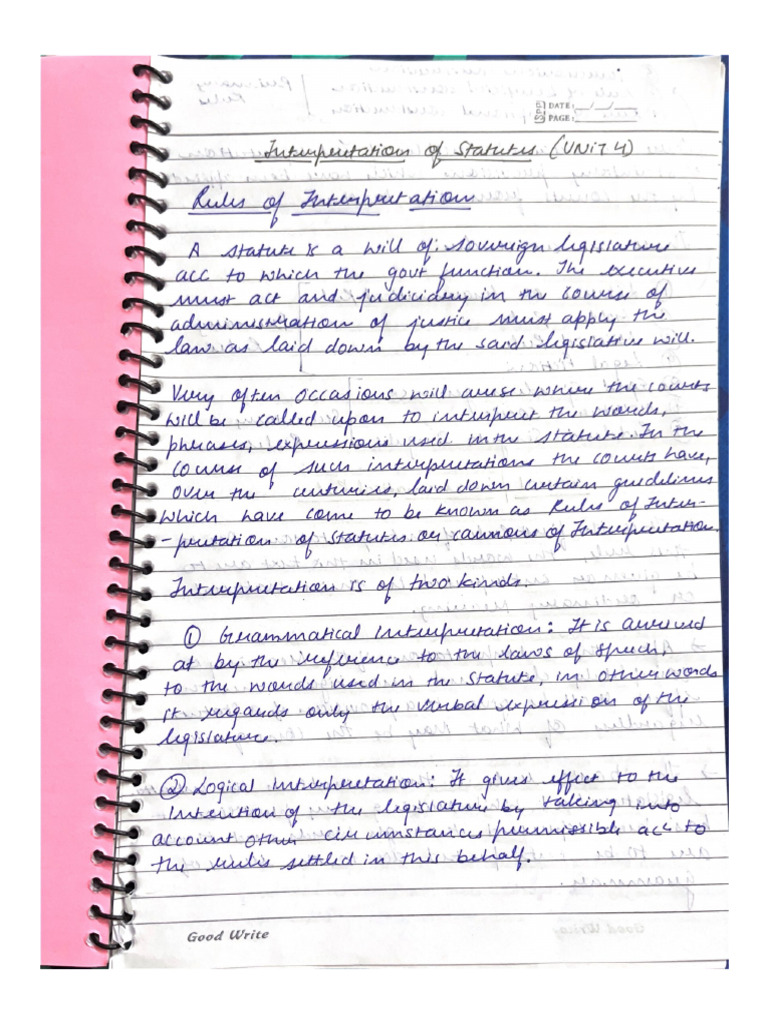 DATE: __/__/__
PAGE:
Interpretation of Statutes (UNIT 4)
Rules of Interpretation
A statute is a will of sovereign legislature
acc to which the govt function. The executive
must act and judicidery in the course of
administration of justice must apply the
law as laid down by the said legislative will.
Very often occasions will arise where the courts
will be, called upon to interpret the words,
phrases, expressions used in the statute. In the
course of such interpretations the courts have,
over the centuries, laid down certain guidelines
which have come to be known as Rules of Inter-
-pretation of statutes or cannons of Interpretation.
Interpretation is of two kinds.
① Grammatical Interpretation: It is arrived
at by the reference to the laws of speech,
to the words used in the statute, in other words
it regards only the verbal expression of the
legislature.
② Logical Interpretation: It gives effect to the
intention of the legislature by taking into
account other circumstances permissible acc to
the rules settled in this behalf.
Good Write